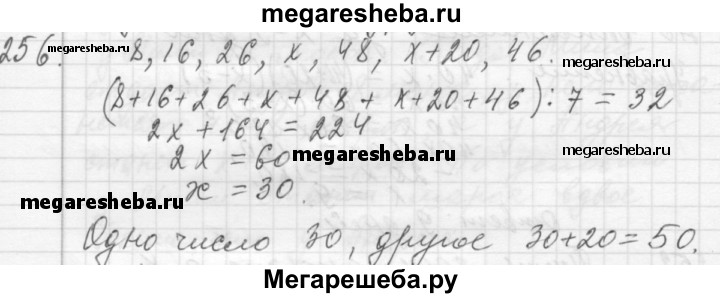 megaresheba.ru
256. 8, 16, 26, x, 48, x+20, 46.
megaresheba.ru
megaresheba.ru
(8+16+26+x+48+x+20+46):7=32
2x+164=224
2x=60
megaresheba.ru
megaresheba.ru
x=30.
megaresheba.ru
Одно число 30, другое 30+20=50.
Мегарешеба.ру